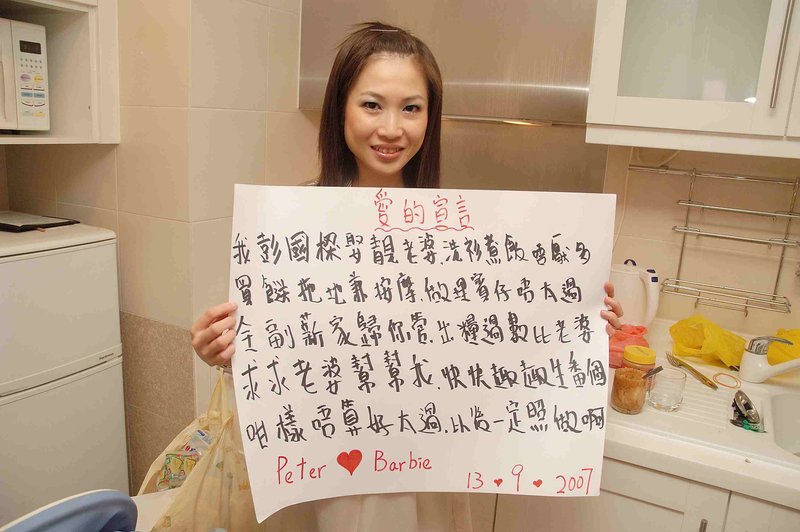 愛的宣言
我彭國樑娶靚老婆,洗衫煮飯唔厭多
買餸拖地兼按摩,做埋賓仔唔太過
全副薪家歸你管,出糧過數比老婆
求求老婆幫幫我,快快趣趣生番個
咁樣唔算好太過,以後一定照做啊
Peter ♥ Barbie 13 ♥ 9 ♥ 2007